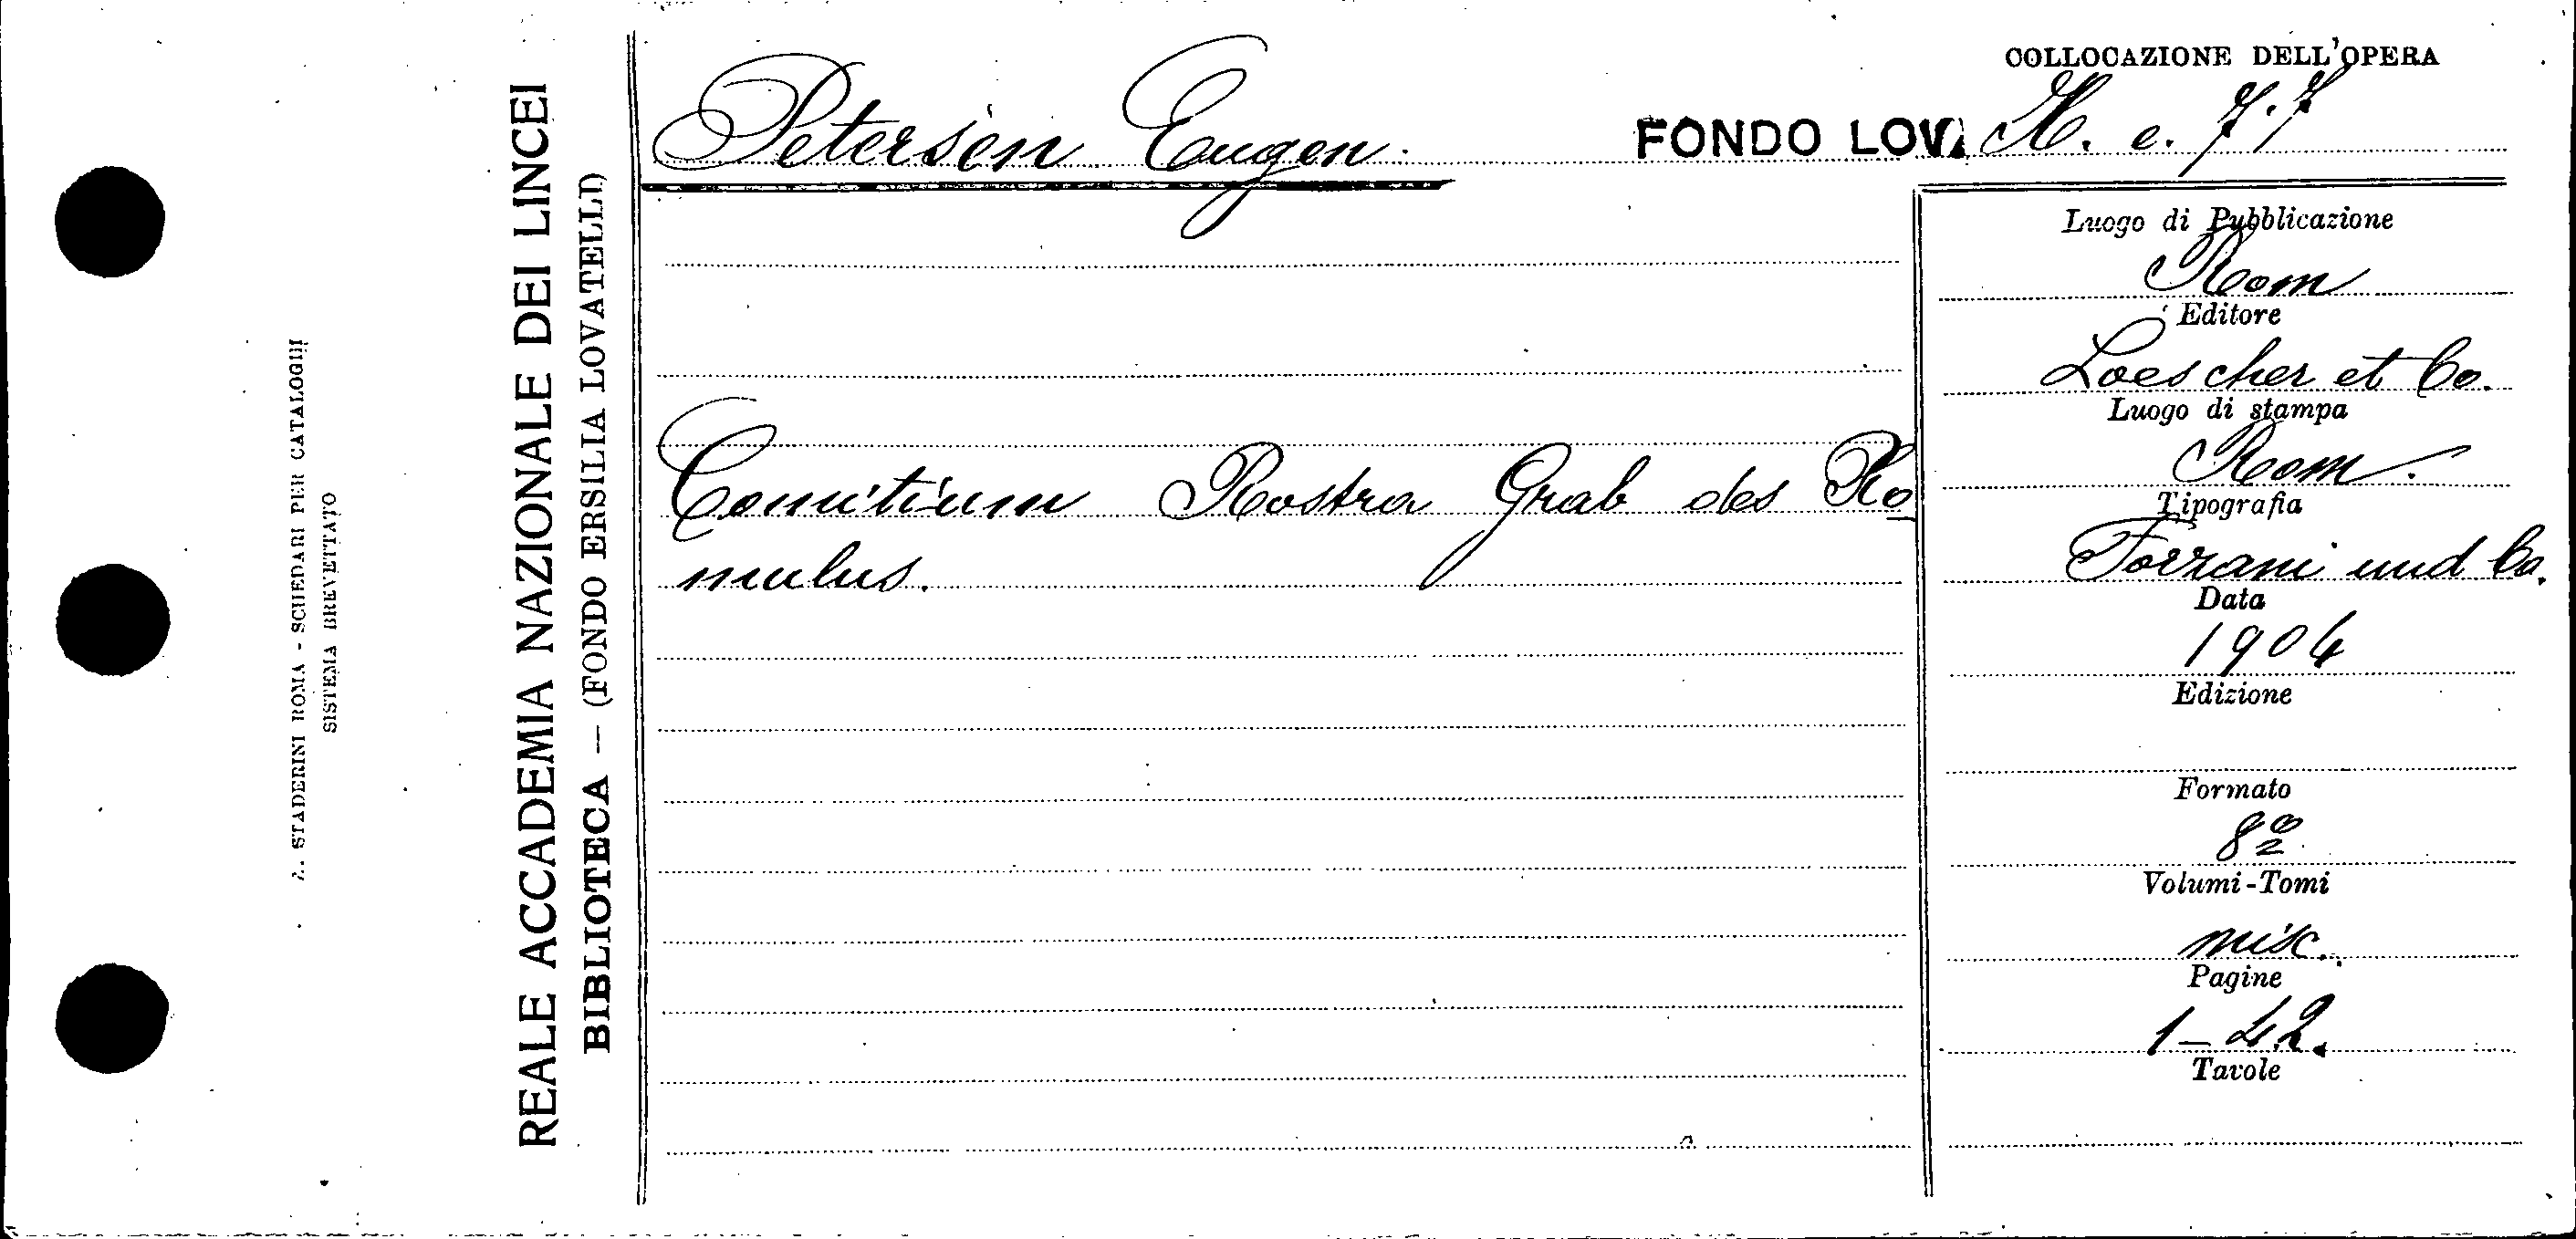 A. STADERINI ROMA - SCHEDARI PER CATALOGHI
SISTEMA BREVETTATO
REALE ACCADEMIA NAZIONALE DEI LINCEI
BIBLIOTECA — (FONDO ERSILIA LOVATELLI)
Petersen Eugen.
COLLOCAZIONE DELL'OPERA
FONDO LOV. H. e. 7.7
Comitium Rostra Grab des Ro
mulus.
Luogo di Pubblicazione
Rom
Editore
Loescher et Co.
Luogo di stampa
Rom.
Tipografia
Forzani und Co.
Data
1904
Edizione
Formato
8º
Volumi-Tomi
misc.
Pagine
1-42.
Tavole